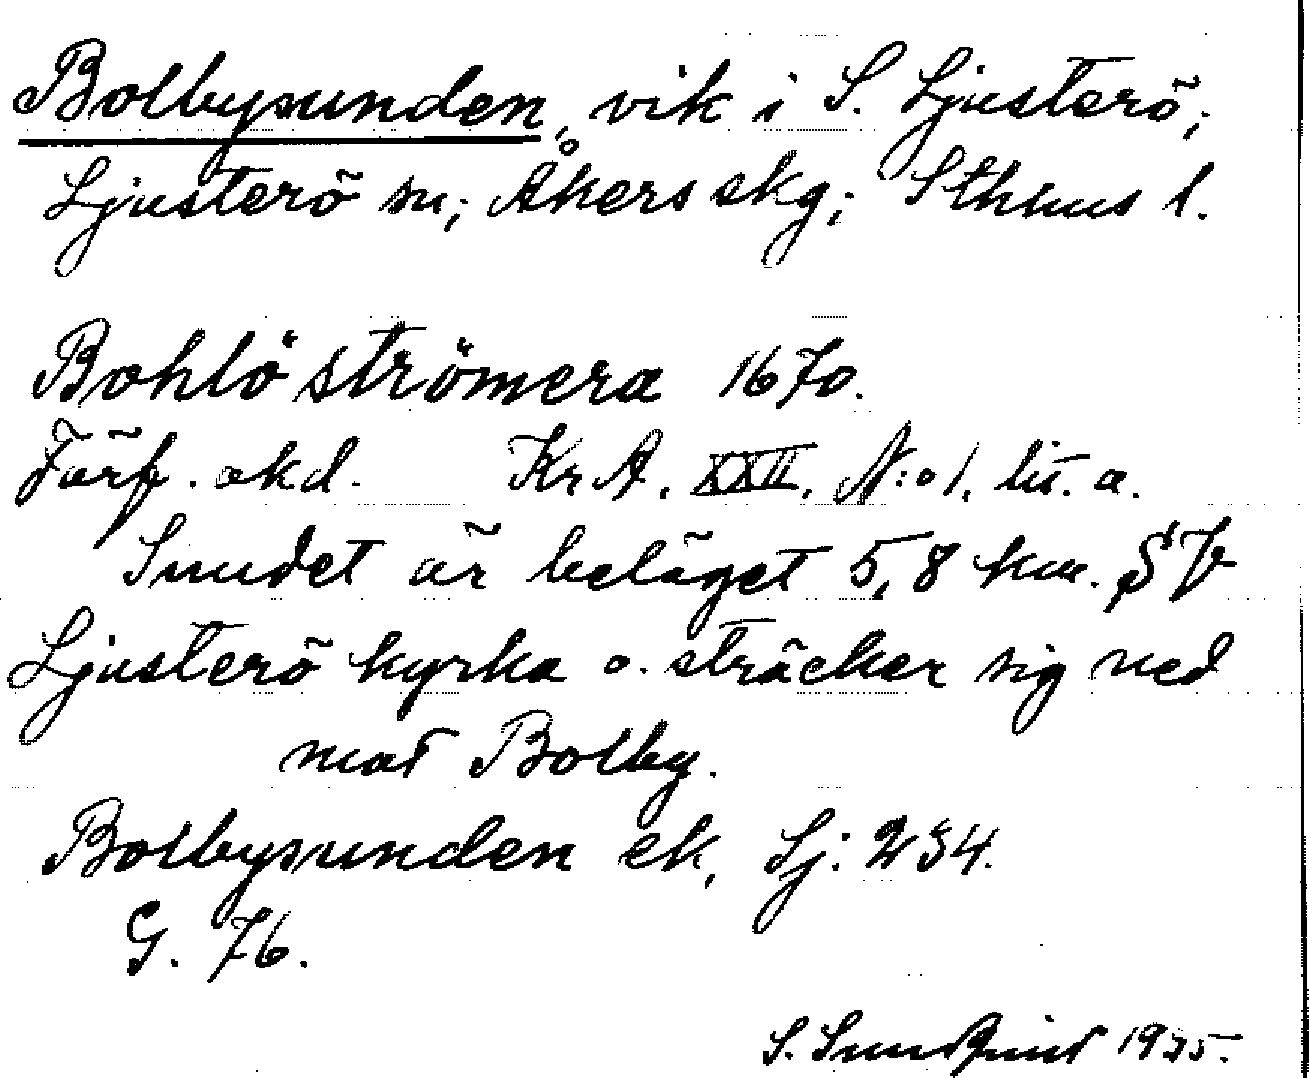 Bolbysunden, vik i S. Ljusterö;
Ljusterö sn; Åkers skg; Sthlms l.
Bohlö strömera 1670.
Förf. okd. Kr A. XXII. N:o 1. lit. a.
Sundet är beläget 5,8 km. S
Ljusterö kyrka o. sträcker sig ned
mot Bolby.
Bolbysunden ek, Lj: 234.
G. 76.
S. Sundquist 1935.